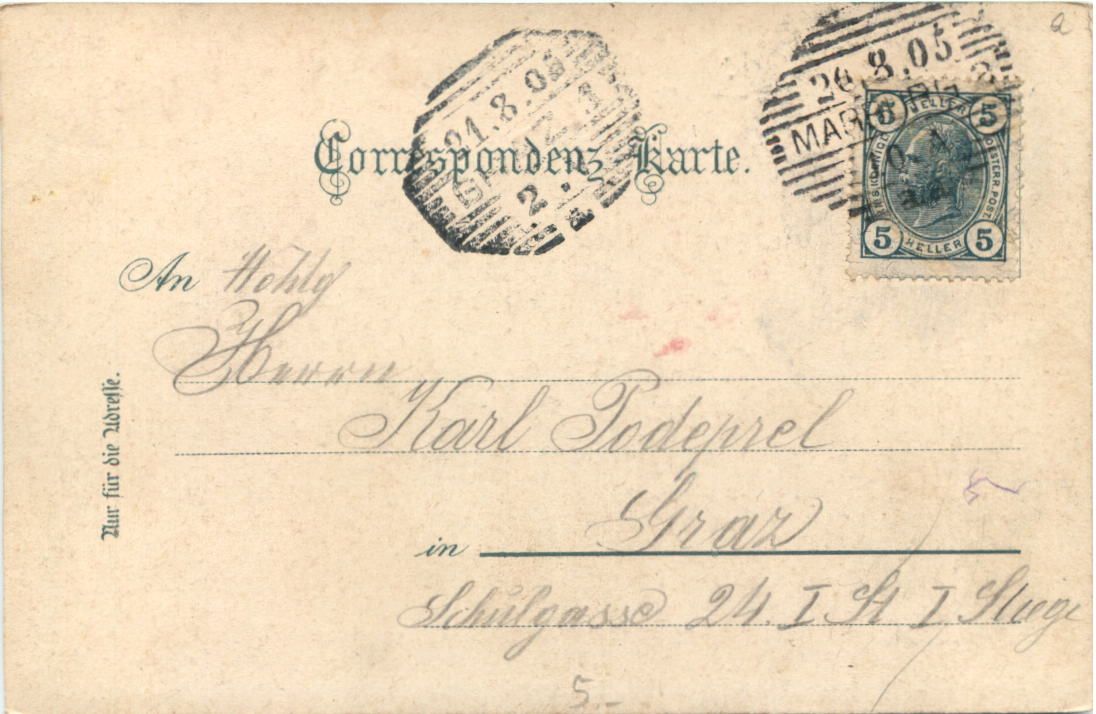 a
26.8.05
MARBURG
21.8.05
GRAZ 1
2.
5 HELLER 5
KAISERL. KÖNIGL. OESTERR. POST.
5 HELLER 5
Correspondenz Karte.
An
Herrn
Karl Podeprel
Nur für die Adresse.
in Graz
Schulgasse 24. I St I Stiege
5.-